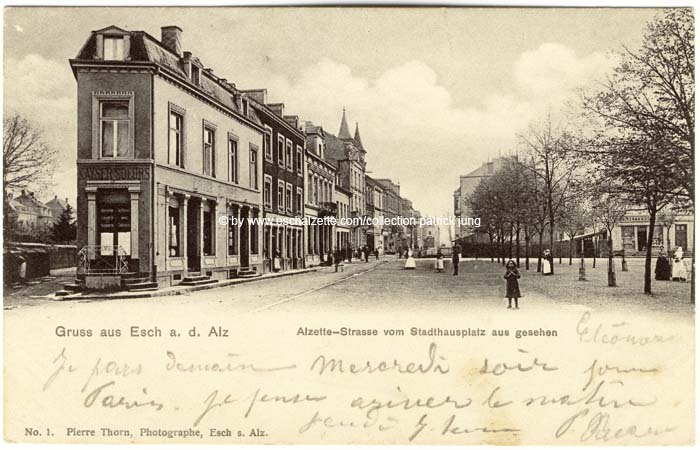 KAISER-SOEURS
© by www.eschalzette.com/collection patrick jung
Gruss aus Esch a. d. Alz
Alzette-Strasse vom Stadthausplatz aus gesehen
Eléonore
Je pars demain Mercredi soir pour
Paris. je pense arriver le matin
Jeudi 7
No. 1. Pierre Thorn, Photographe, Esch s. Alz.